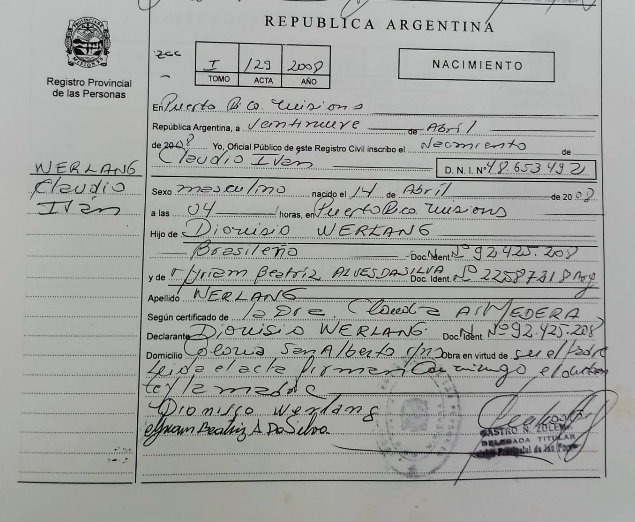 REPUBLICA ARGENTINA
Registro Provincial
de las Personas
I 129 2008
TOMO ACTA AÑO
NACIMIENTO
En Puerto Rico Misiones
República Argentina, a veintinueve de Abril
de 2008 Yo, Oficial Público de este Registro Civil inscribo el Nacimiento de
Claudio Iván
D. N. I. Nº 48.653.492
WERLANG
Claudio
Iván
Sexo masculino nacido el 14 de Abril de 2008
a las 04 horas, en Puerto Rico Misiones
Hijo de Dionisio WERLANG
Brasileño Doc. Ident. Nº 92.425.208
y de Myriam Beatriz ALVES DA SILVA Doc. Ident. Nº 22587318 Arg
Apellido WERLANG
Según certificado de la Dra. Claudia
Declarante Dionisio WERLANG Doc. Ident. Nº 92.425.208
Domicilio Colonia San Alberto s/n Obra en virtud de ser el padre
Leida el acta firman conmigo el
te y la madre
Dionisio Werlang
Myriam Beatriz A Da Silva
CASTRO N.
DELEGADA TITULAR